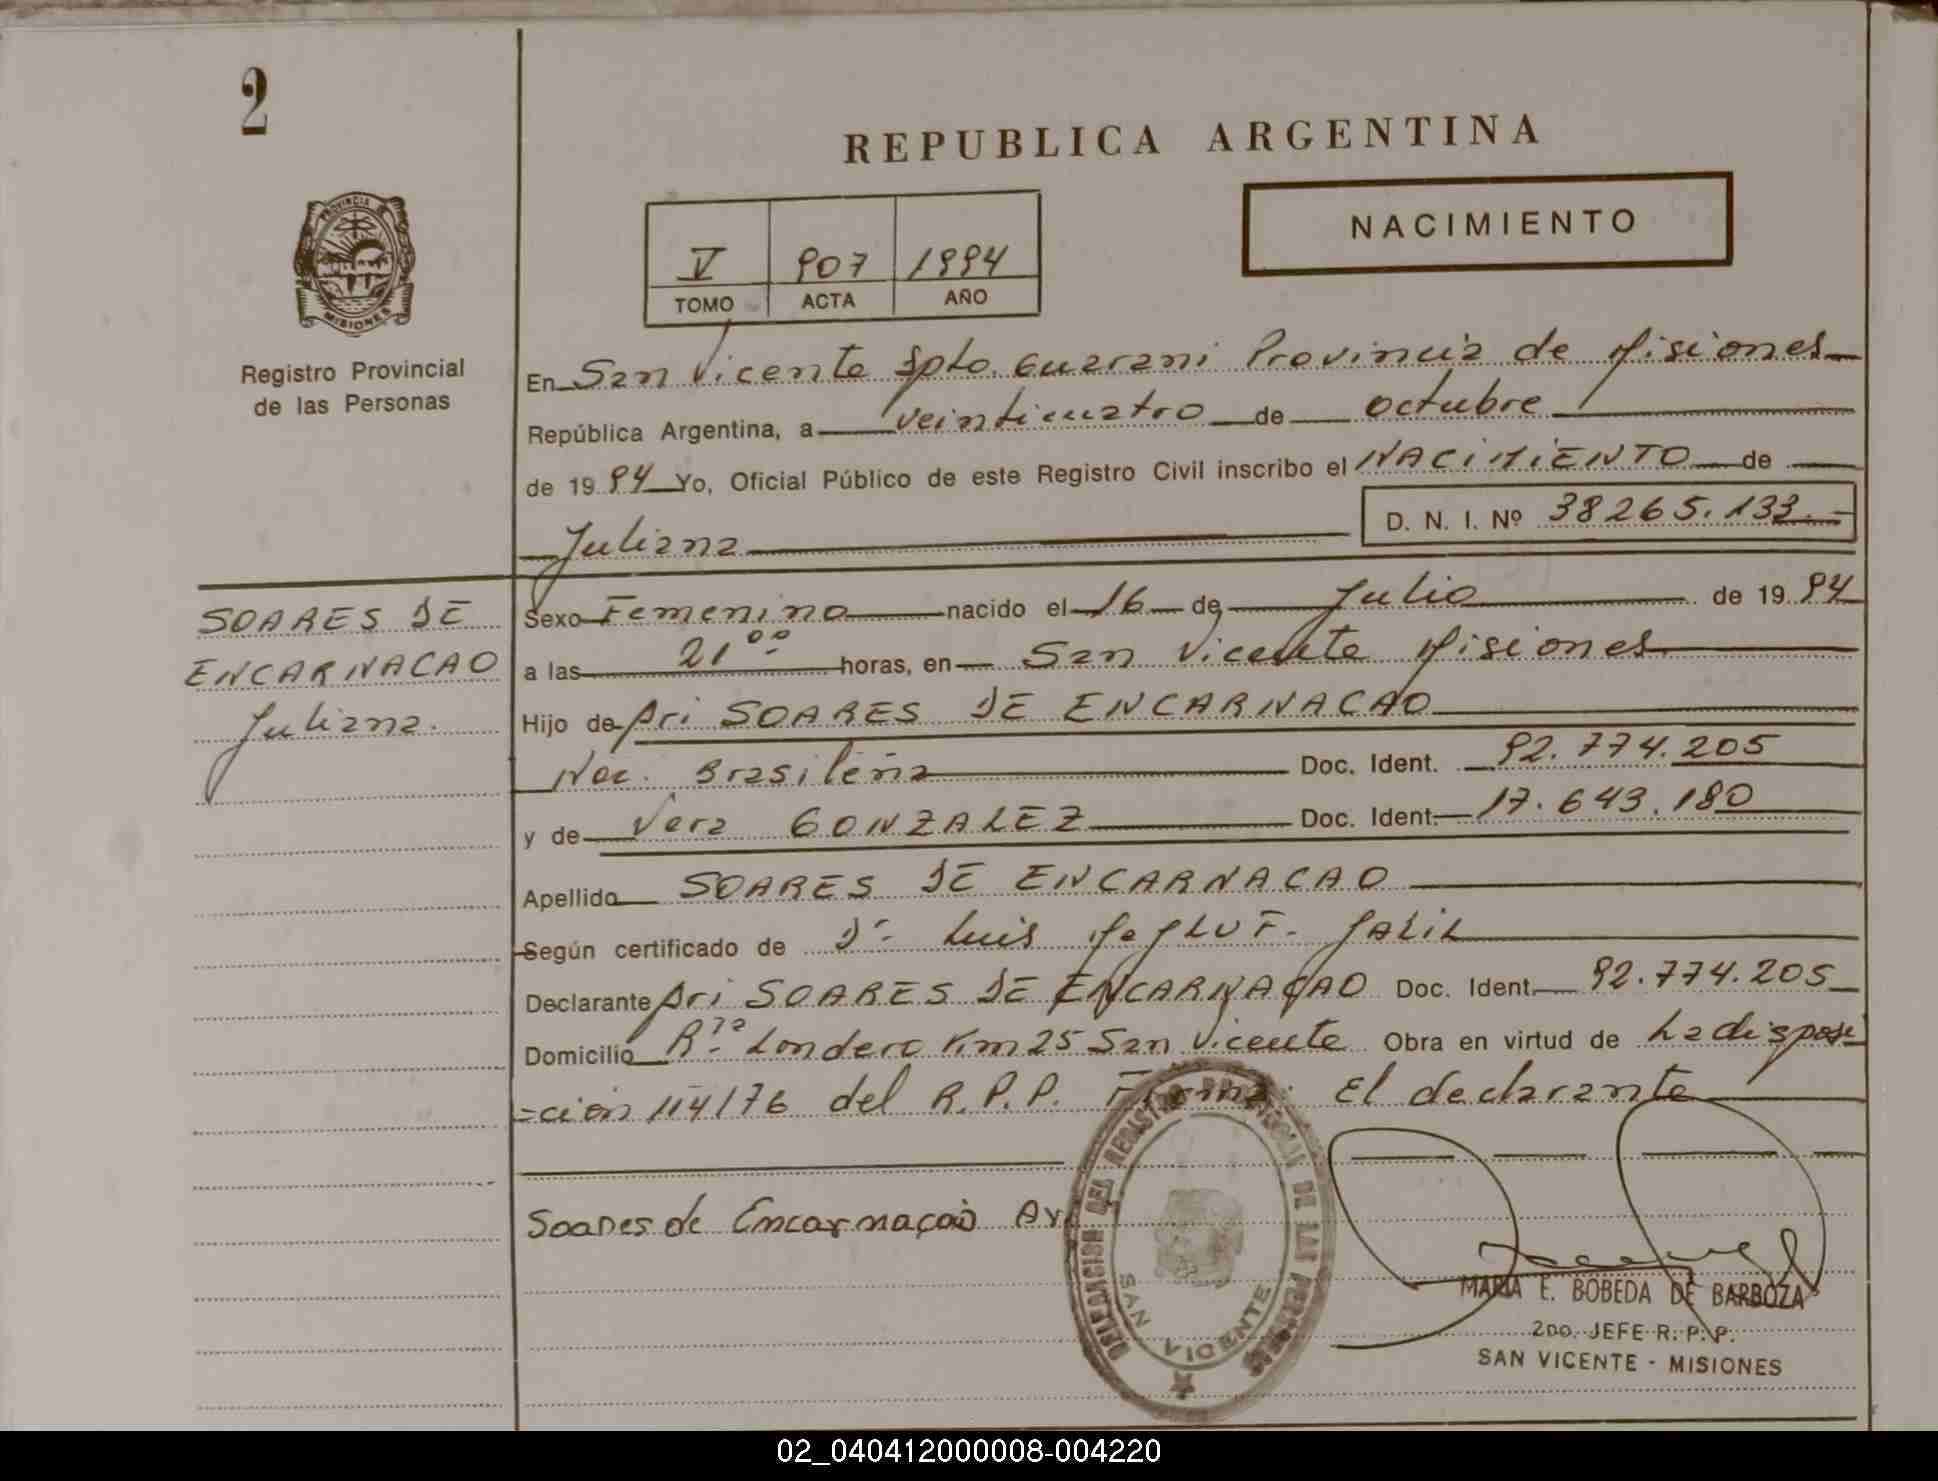 2
REPUBLICA ARGENTINA
NACIMIENTO
V 907 1994
TOMO ACTA AÑO
PROVINCIA
MISIONES
Registro Provincial
de las Personas
En San Vicente Dpto. Guarani Provincia de Misiones
República Argentina, a veinticuatro de octubre
de 1994 Yo, Oficial Público de este Registro Civil inscribo el NACIMIENTO de
Juliana D. N. I. Nº 38265.133.-
SOARES DE
ENCARNACAO
Juliana.
Sexo Femenino nacido el 16 de Julio de 1994
a las 21 ºº horas, en San Vicente Misiones
Hijo de Ari SOARES DE ENCARNACAO
Nac. Brasileña Doc. Ident. 92.774.205
y de Vera GONZALEZ Doc. Ident. 17.643.180
Apellido SOARES DE ENCARNACAO
Según certificado de Dr. Luis
Declarante Ari SOARES DE ENCARNAÇAO Doc. Ident. 92.774.205
Domicilio Londero Km 25 San Vicente Obra en virtud de La disposi
=ción 114/76 del R.P.P. Firma: El declarante
Soares de Encarnaçaõ
DELEGACION DEL REGISTRO PROVINCIAL DE LAS PERSONAS
SAN VICENTE
MARIA E. BOBEDA DE BARBOZA
2DO. JEFE R. P. P.
SAN VICENTE - MISIONES
02_040412000008-004220